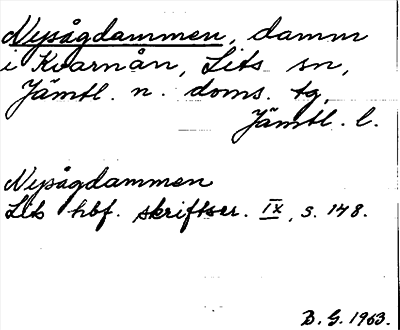 Nysågdammen, damm
i Kvarnån, Lits sn,
Jämtl. n. doms. tg,
Jämtl. l.
Nysågdammen
Lits hbf. skriftser. IX, s. 148.
B. G. 1963.